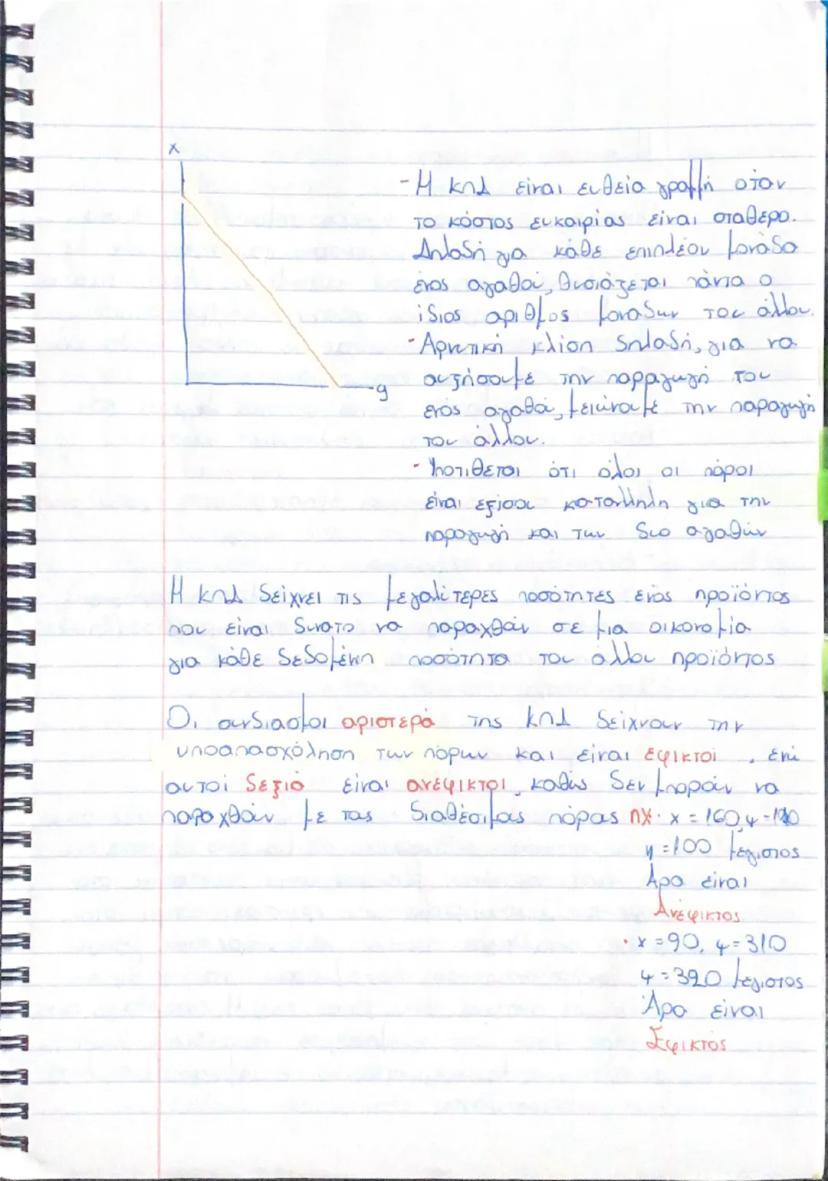 x
- Η ΚΠΔ είναι ευθεία γραμμή όταν
το κόστος ευκαιρίας είναι σταθερό.
Δηλαδή για κάθε επιπλέον μονάδα
ενός αγαθού, θυσιάζεται πάντα ο
ίδιος αριθμός μονάδων του άλλου.
- Αρνητική κλίση δηλαδή, για να
αυξήσουμε την παραγωγή του
ενός αγαθού, μειώνουμε την παραγωγή
του άλλου.
y
- Υποτίθεται ότι όλοι οι πόροι
είναι εξίσου κατάλληλη για την
παραγωγή και των δυο αγαθών
Η ΚΠΔ δείχνει τις μεγαλίτερες ποσότητες ενός προϊόντος
που είναι δυνατό να παραχθούν σε μια οικονομία
για κάθε δεδομένη ποσότητα του άλλου προϊόντος
Οι συνδιασμοι αριστερά της ΚΠΔ δείχνουν την
υποαπασχόληση των πόρων και είναι εφικτοί, ενώ
αυτοί δεξιά είναι ανέφικτοι, καθώς δεν μπορούν να
παραχθούν με τους διαθέσιμους πόρους πχ· x = 160, ψ =
ψ = 100 μέγιστος
Άρα είναι
Ανέφικτος
· x = 90, ψ = 310
ψ = 320 μέγιστος
Άρα είναι
Εφικτός